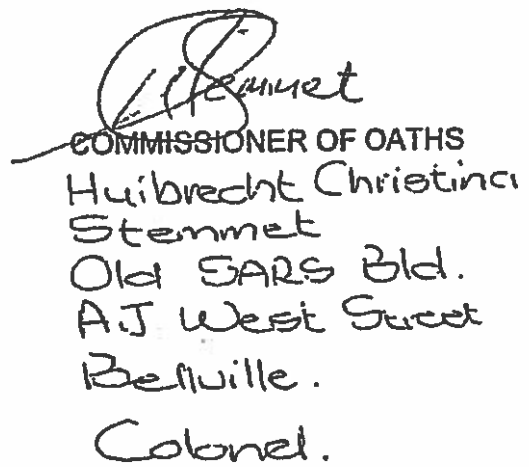 Stemmet
COMMISSIONER OF OATHS
Huibrecht Christina
Stemmet
Old SARS Bld.
A.J West Street
Bellville.
Colonel.